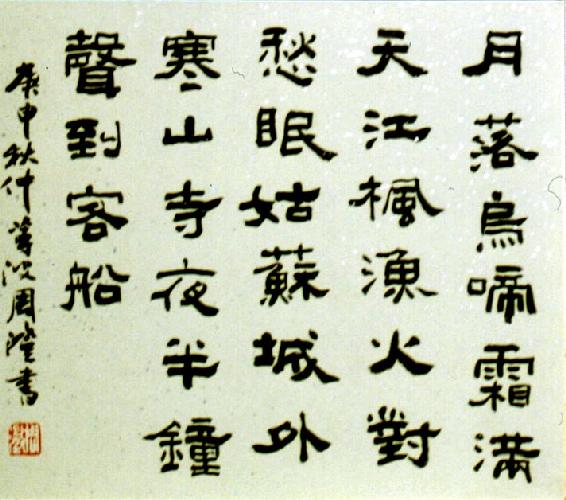 月落烏啼霜滿
天江楓漁火對
愁眠姑蘇城外
寒山寺夜半鐘
聲到客船
庚申秋仲周書